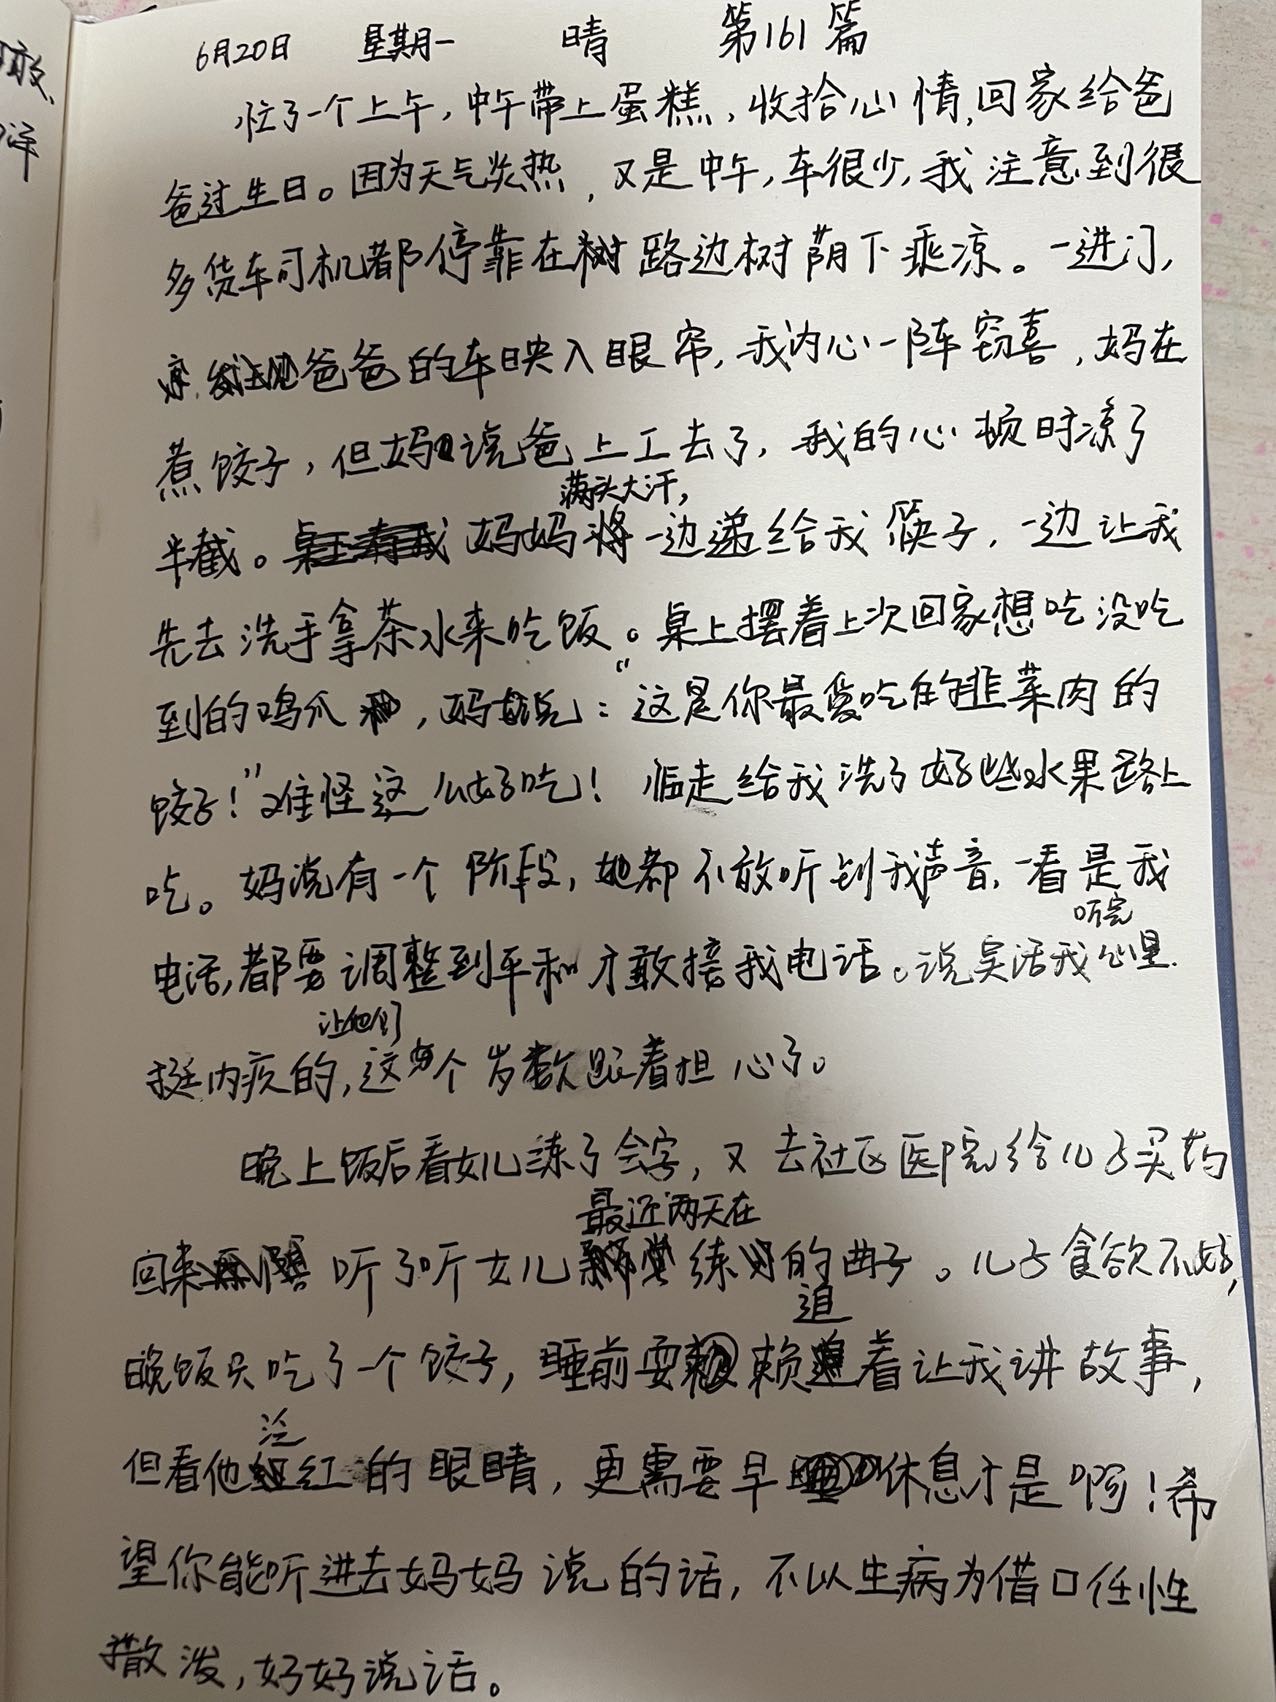 6月20日 星期一 晴 第161篇
忙了一个上午,中午带上蛋糕,收拾心情,回家给爸
爸过生日。因为天气炎热,又是中午,车很少,我注意到很
多货车司机都停靠在路边树荫下乘凉。一进门,
爸爸的车映入眼帘,我内心一阵窃喜,妈在
煮饺子,但妈说爸上工去了,我的心顿时凉了
半截。妈妈满头大汗,一边递给我筷子,一边让我
先去洗手拿茶水来吃饭。桌上摆着上次回家想吃没吃
到的鸡爪,妈说:“这是你最爱吃的韭菜肉的
饺子!”难怪这么好吃!临走给我洗了好些水果路上
吃。妈说有一个阶段,她都不敢听到我声音,一看是我
电话,都要调整到平和才敢接我电话。说实话我听完心里
挺内疚的,让他们这个岁数跟着担心了。
晚上饭后看女儿练了会字,又去社区医院给儿子买药
回来听了听女儿最近两天在练习的曲子。儿子食欲不好,
晚饭只吃了一个饺子,睡前耍赖追着让我讲故事,
但看他泛红的眼睛,更需要早休息才是啊!希
望你能听进去妈妈说的话,不以生病为借口任性
撒泼,好好说话。